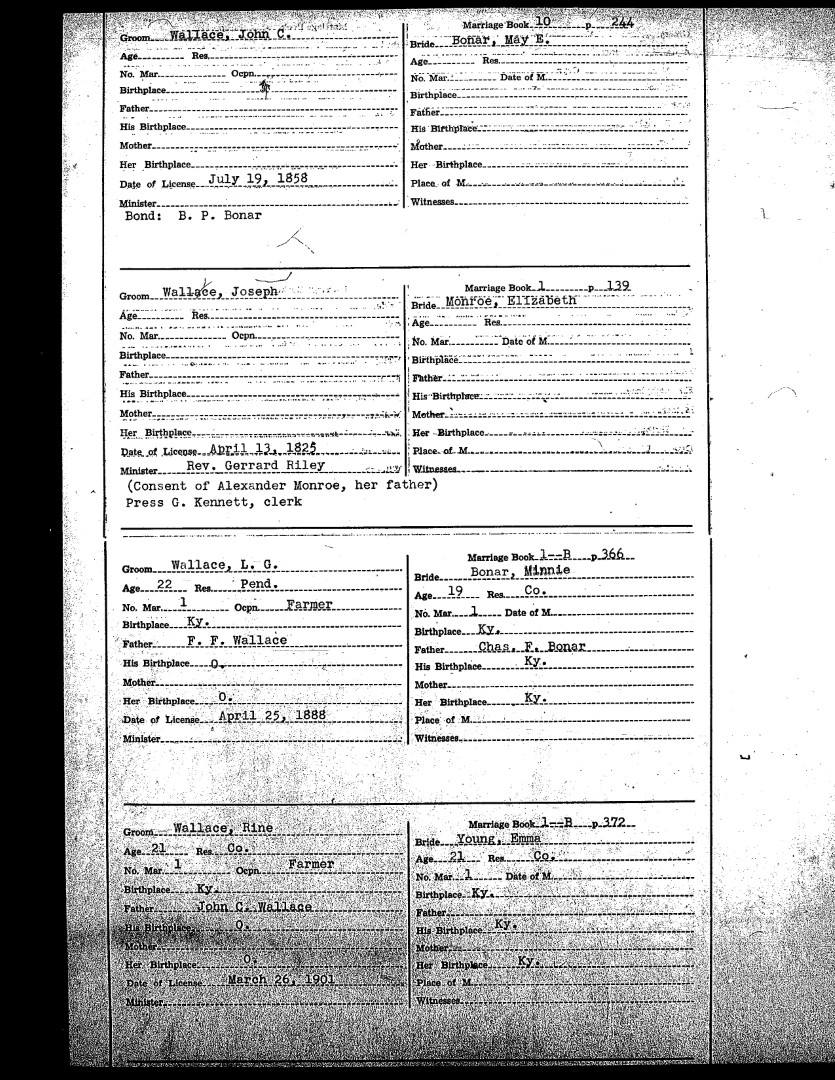 Groom Wallace, John C.
Age Res.
No. Mar. Ocpn.
Birthplace
Father
His Birthplace
Mother
Her Birthplace
Date of License July 19, 1858
Minister
Bond: B. P. Bonar
Marriage Book 10 p 244
Bride Bonar, May E.
Age Res.
No. Mar. Date of M.
Birthplace
Father
His Birthplace
Mother
Her Birthplace
Place of M.
Witnesses
Groom Wallace, Joseph
Age Res.
No. Mar. Ocpn.
Birthplace
Father
His Birthplace
Mother
Her Birthplace
Date of License April 13, 1825
Minister Rev. Gerrard Riley
(Consent of Alexander Monroe, her father)
Press G. Kennett, clerk
Marriage Book 1 p 139
Bride Monroe, Elizabeth
Age Res.
No. Mar. Date of M.
Birthplace
Father
His Birthplace
Mother
Her Birthplace
Place of M.
Witnesses
Groom Wallace, L. G.
Age 22 Res. Pend.
No. Mar. 1 Ocpn. Farmer
Birthplace Ky.
Father F. F. Wallace
His Birthplace O.
Mother
Her Birthplace O.
Date of License April 25, 1888
Minister
Marriage Book 1--B p 366
Bride Bonar, Minnie
Age 19 Res. Co.
No. Mar. 1 Date of M.
Birthplace Ky.
Father Chas. F. Bonar
His Birthplace Ky.
Mother
Her Birthplace Ky.
Place of M.
Witnesses
Groom Wallace, Rine
Age 21 Res. Co.
No. Mar. 1 Ocpn. Farmer
Birthplace Ky.
Father John C. Wallace
His Birthplace O.
Mother
Her Birthplace O.
Date of License March 26, 1901
Minister
Marriage Book 1--B p 372
Bride Young, Emma
Age 21 Res. Co.
No. Mar. 1 Date of M.
Birthplace Ky.
Father
His Birthplace Ky.
Mother
Her Birthplace Ky.
Place of M.
Witnesses